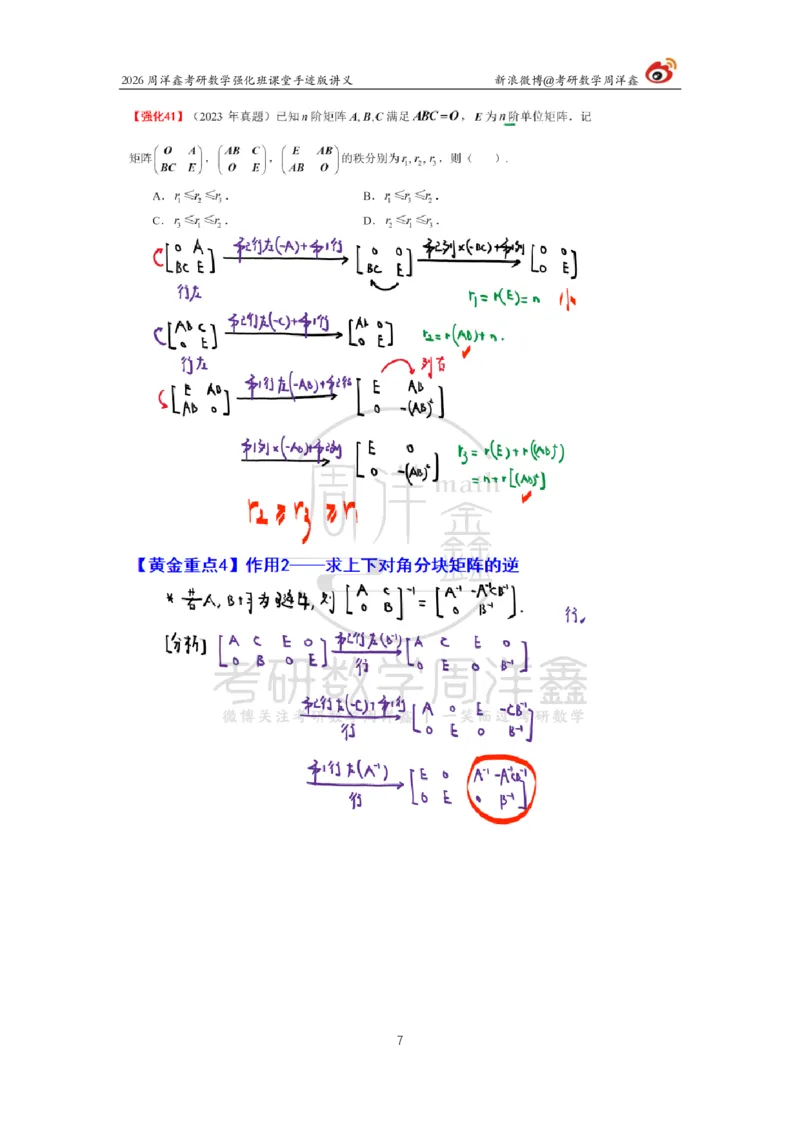 2026 周洋鑫考研数学强化班课堂手迹版讲义 新浪微博@考研数学周洋鑫
【强化41】（2023 年真题）已知 n 阶矩阵 A, B, C 满足 ABC = O，E 为 n 阶单位矩阵，记
矩阵 (O A; BC E)，(AB C; O E)，(E AB; AB O) 的秩分别为 r₁, r₂, r₃，则（ ）.
A．r₁≤r₂≤r₃． B．r₁≤r₃≤r₂．
C．r₃≤r₁≤r₂． D．r₂≤r₁≤r₃．
[0 A; BC E] 第2行左(-A)+第1行 [0 0; BC E] 第2列×(-BC)+第1列 [0 0; 0 E]
行左 r₁=r(E)=n 小
[AB C; 0 E] 第2行左(-C)+第1行 [AB 0; 0 E] r₂=r(AB)+n.
行左 列右
[E AB; AB 0] 第1行左(-AB)+第2行 [E AB; 0 -(AB)²]
第1列×(-AB)+第2列 [E 0; 0 -(AB)²] r₃=r(E)+r((AB)²)
=n+r[(AB)²]
r₂≥r₃≥n
周洋鑫 math
【黄金重点4】作用2——求上下对角分块矩阵的逆
* 若A, B均为可逆阵, 则 [A C; 0 B]⁻¹ = [A⁻¹ -A⁻¹CB⁻¹; 0 B⁻¹].
行.
[分析] [A C E 0; 0 B 0 E] 第2行左(B⁻¹) 行 [A C E 0; 0 E 0 B⁻¹]
考研数学周洋鑫
第2行左(-C)+第1行 行 [A 0 E -CB⁻¹; 0 E 0 B⁻¹]
第1行左(A⁻¹) 行 [E 0 A⁻¹ -A⁻¹CB⁻¹; 0 E 0 B⁻¹]
7